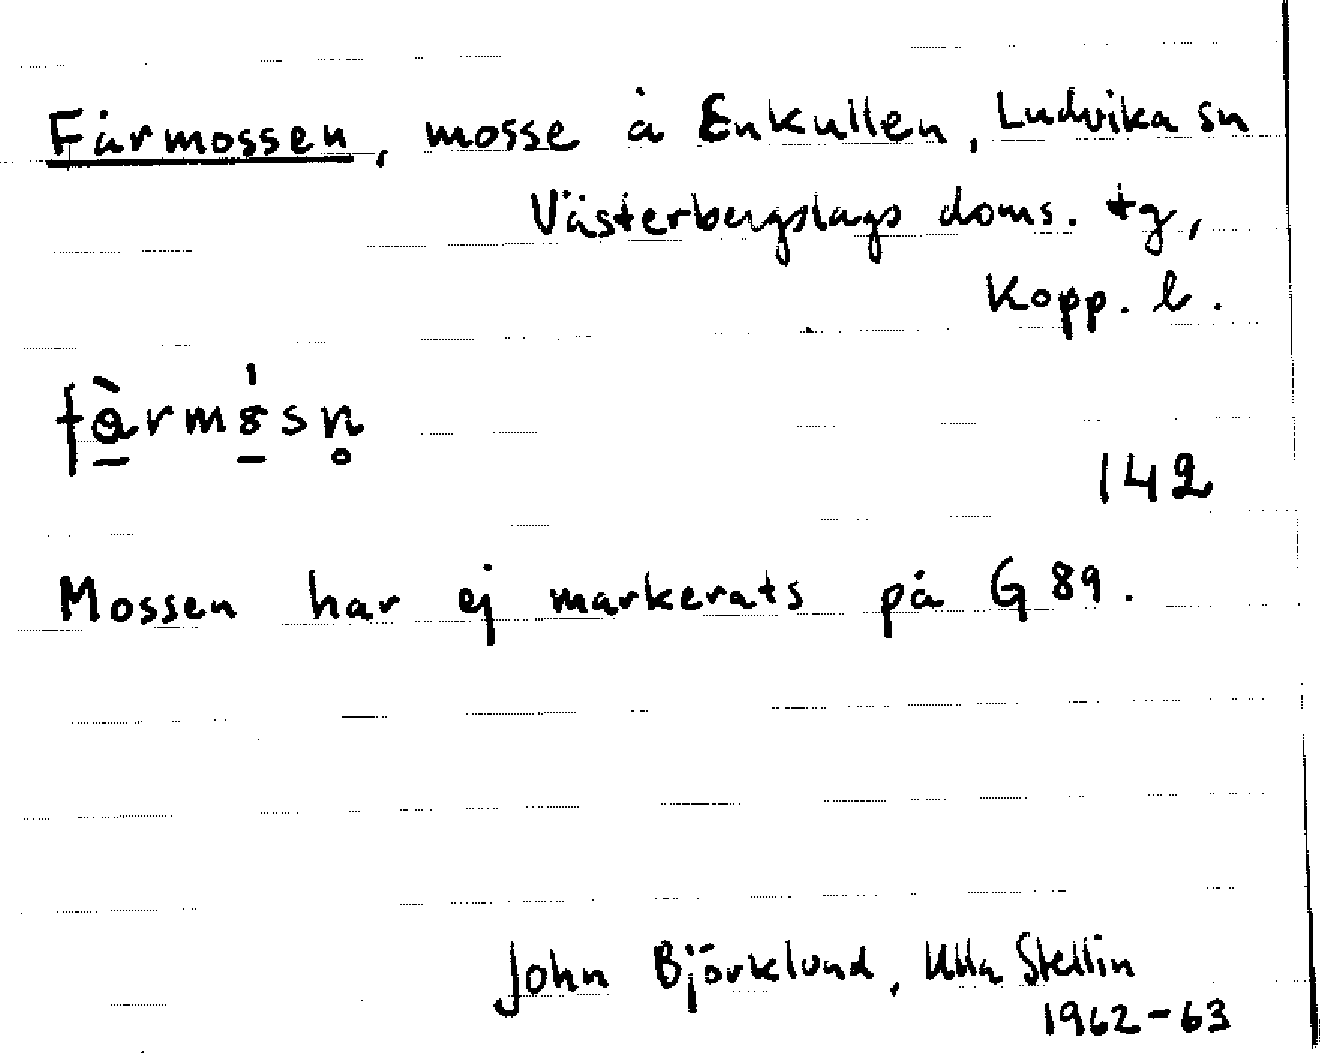 Fårmossen, mosse å Enkullen, Ludvika sn
Västerbergslags doms. tg,
Kopp. l.
142
Mossen har ej markerats på G 89.
John Björklund, Ulla Stellin
1962-63